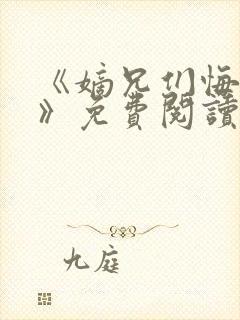 《嫡兄们悔
》免費閱讀
九庭